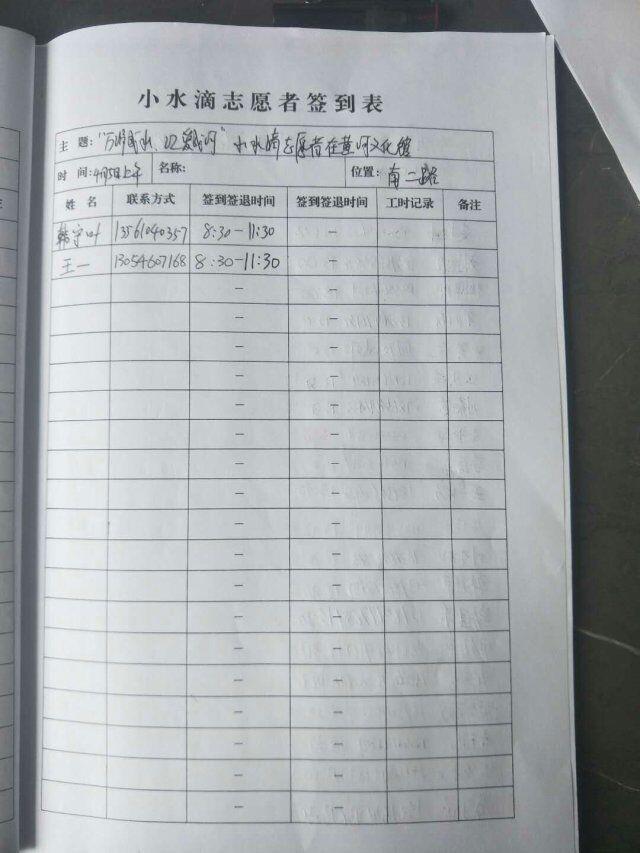 小水滴志愿者签到表
主 题: 小水滴志愿者在黄河文化馆
时 间: 4月5日上午 名称: 位置: 南二路
姓 名 联系方式 签到签退时间 签到签退时间 工时记录 备注
韩守叶 13561040357 8:30-11:30 -
王一 13054607168 8:30-11:30 -
- -
- -
- -
- -
- -
- -
- -
- -
- -
- -
- -
- -
- -
- -
- -
- -
- -
- -